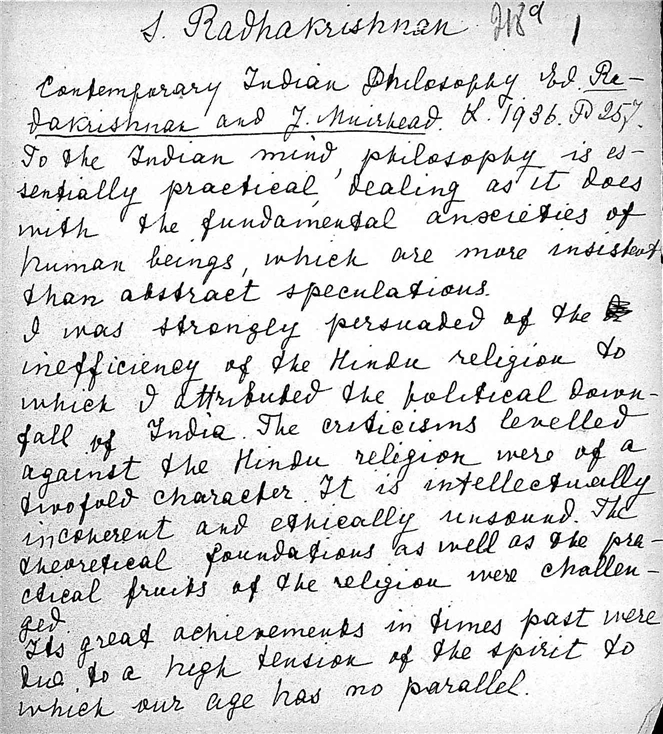 S. Radhakrishnan 218d 1
Contemporary Indian Philosophy Ed. Ra-
dakrishnan and J. Muirhead. L. 1936. P 257.
To the Indian mind, philosophy is es-
sentially practical, dealing as it does
with the fundamental anxieties of
human beings, which are more insistent
than abstract speculations.
I was strongly persuaded of the
inefficiency of the Hindu religion to
which I attributed the political down-
fall of India. The criticisms levelled
against the Hindu religion were of a
twofold character. It is intellectually
incoherent and ethically unsound. The
theoretical foundations as well as the pra-
ctical fruits of the religion were challen-
ged.
Its great achievements in times past were
due to a high tension of the spirit to
which our age has no parallel.